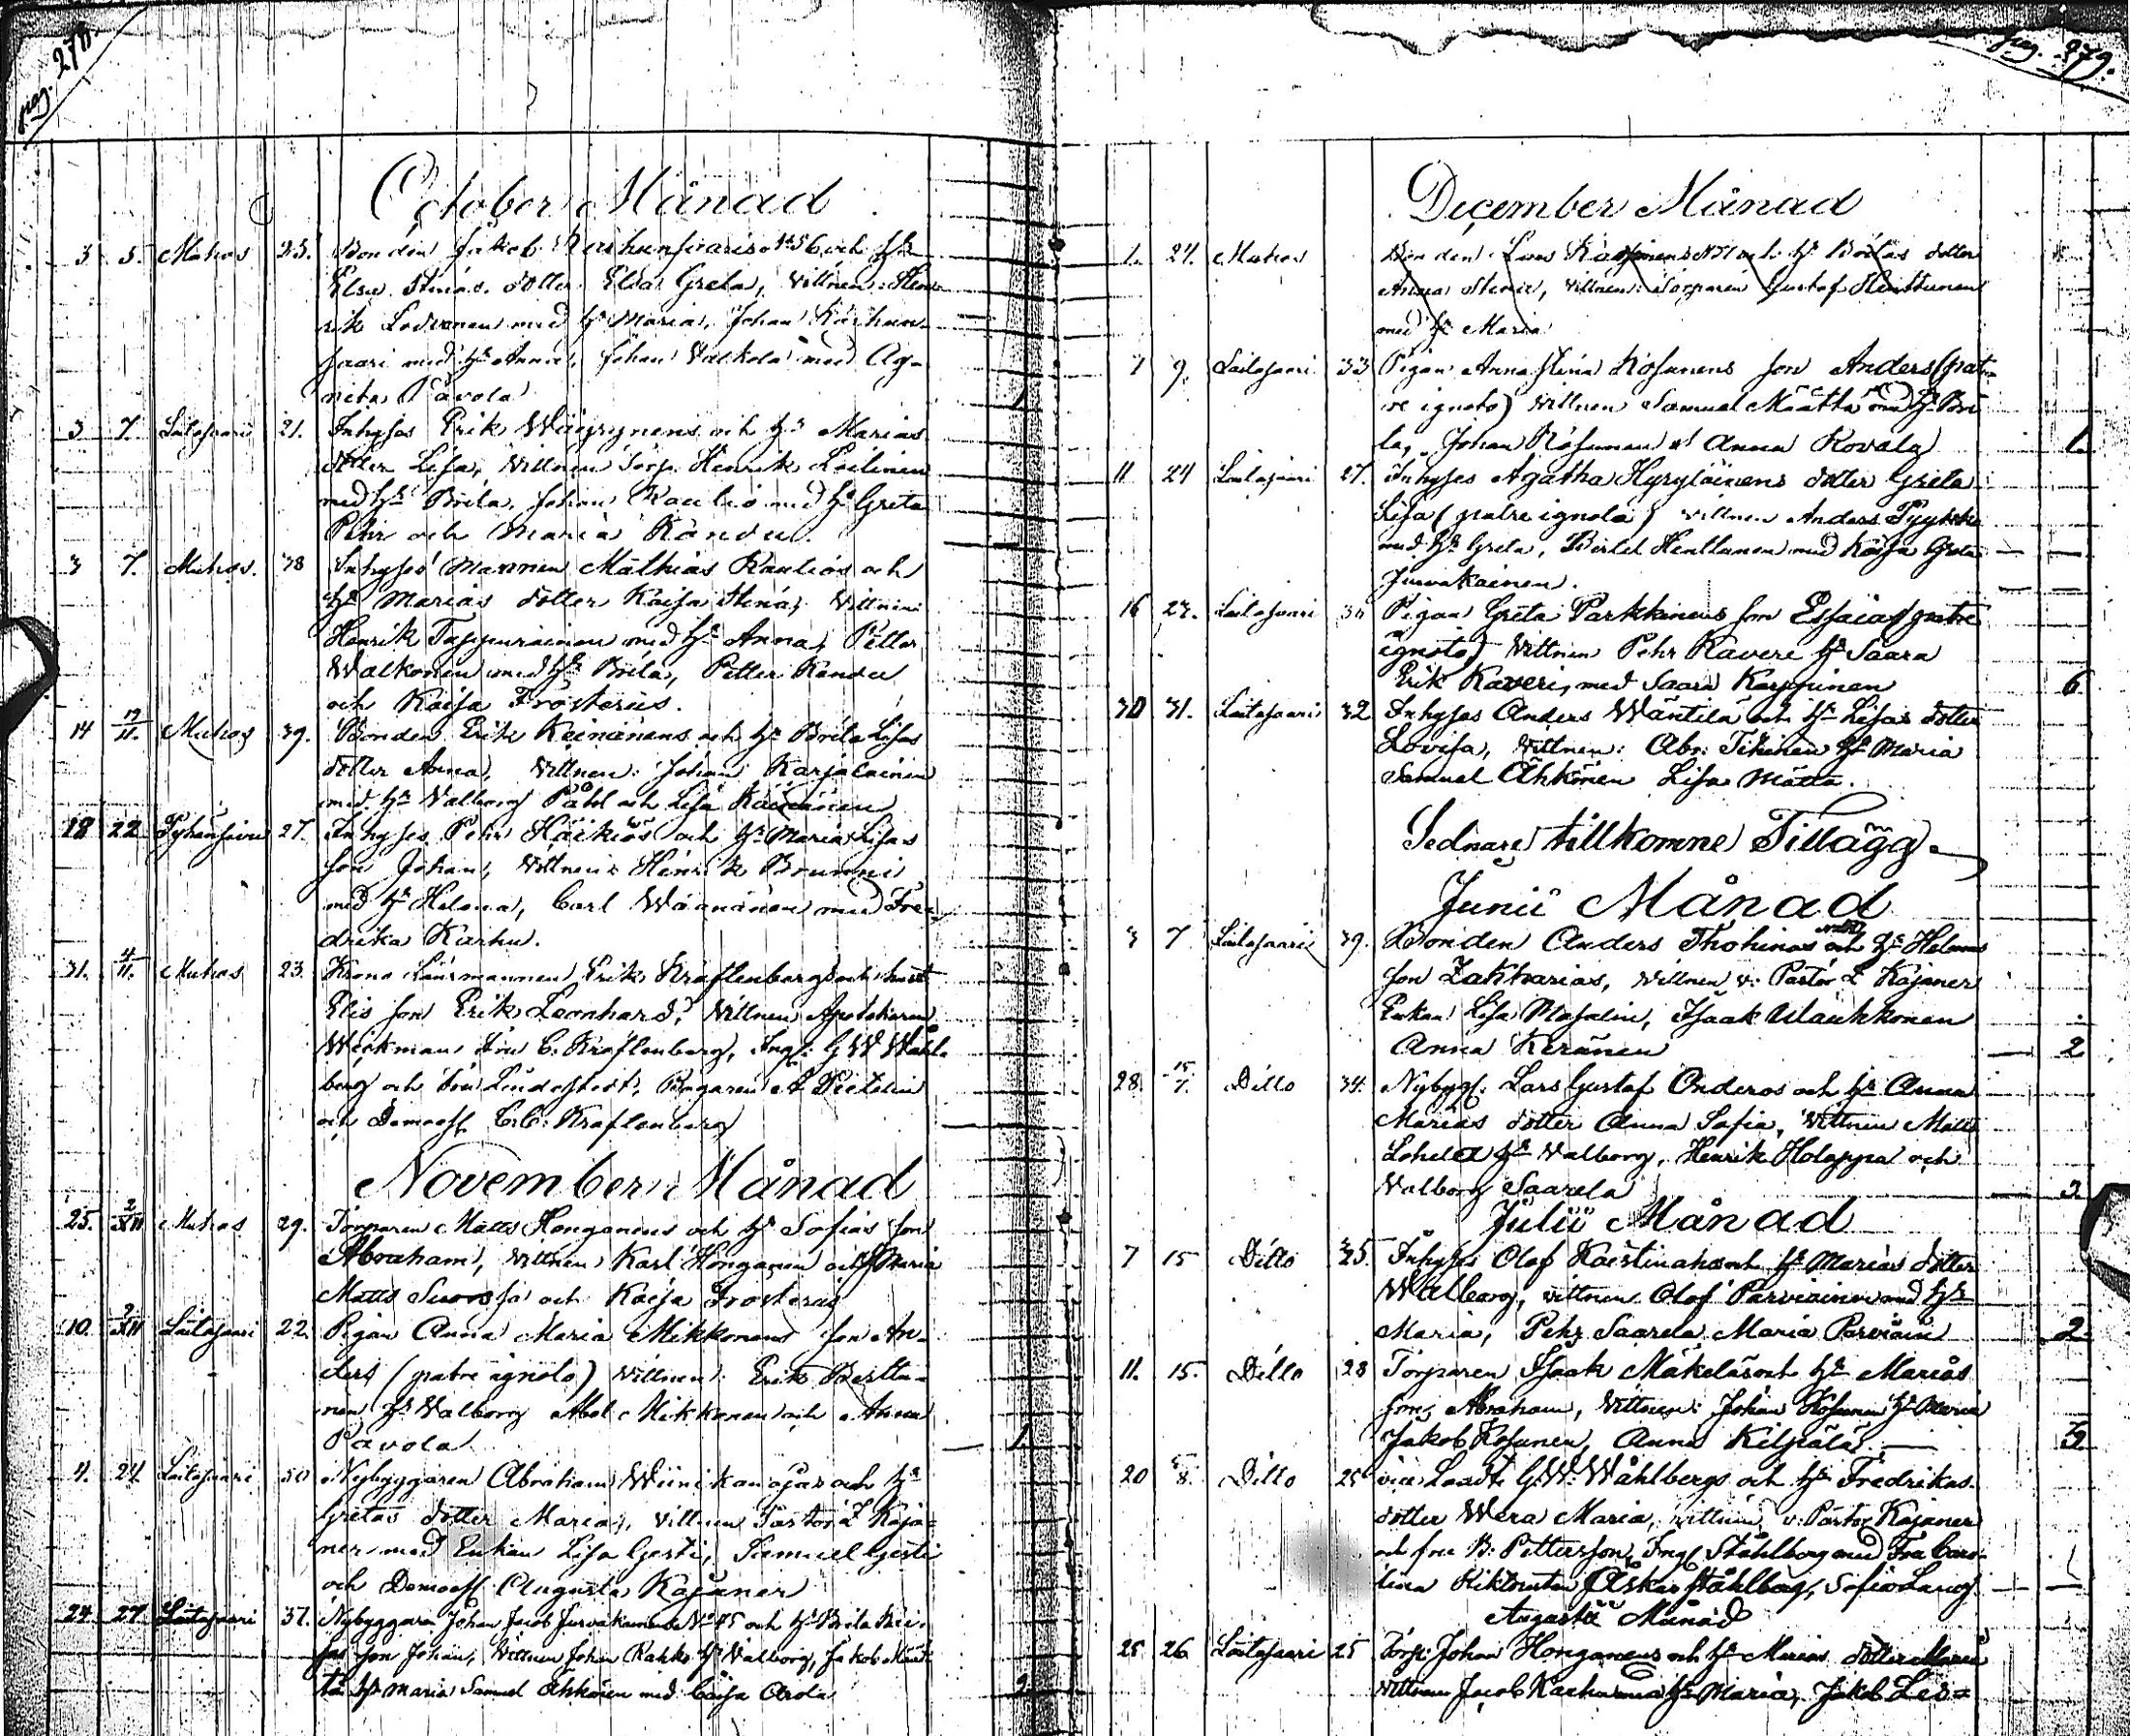 pag. 278.
October Månad
3 5 Muhos 23. Bonden Jakob Karhunsaaris och hr
Elsa Stinas dotter Elsa Greta, Vittnen: Hen-
rik Lodvonen med hr Maria, Johan Karhun-
saari med hr Anna, Johan Valkola med Ag-
neta Pavola 1
3 7. Laitasaari 21. Inhyses Erik Wäyrynens och hr Marias
dotter Lisa, Vittnen Torp. Henrik Leilinen
med hr Brita, Johan Raulio med hr Greta
Pehr och Maria Kandu.
3 7. Muhos. 38 Inhyses Mannen Mathias Raulios och
hr Marias dotter Kaisa Stina, Vittnen:
Henrik Tuppurainen med hr Anna, Petter
Walkonen med hr Brita, Petter Kandu
och Kaisa Frosterus.
14 17/11. Muhos 39. Bonden Erik Keinänens och hr Brita Lisas
dotter Anna, Vittnen: Johan Karjalainen
med hr Valborg Påhl och Lisa Keinänen
18 22 Pyhänsivu 27. Inhyses Pehr Häikiös och hr Maria Lisas
son Johan, Vittnen: Henrik Brunni
med hr Helena, Carl Wäänänen med Fre-
drika Karhu.
31. 4/11. Muhos 23. Krono Länsmannen Erik Kraftenbergs och hust
Elis son Erik Leonhard, Vittnen Apothekaren
Weckman Fru C. Kraftenberg, Ing. G W Wåhl-
berg och Fru Lindestedt, Bagaren A Pietelin
och Demoss. C.C. Kraftenberg
November Månad
25. 2/XII Muhos 29. Torparen Matts Honganens och hr Sofias son
Abraham, Vittnen Karl Honganen och hr Maria
Matts Suorsa och Kaisa Frosterus
10. 2/XII Laitasaari 22. Pigan Anna Maria Mikkonens son An-
ders (patre ignoto) Vittnen: Erik Perttu-
nen hr Valborg Abel Mikkonen och Anna
Pavola 1.
4. 24. Laitasaari 30 Nybyggaren Abraham Wiinikanojas och hr
Gretas dotter Maria, Vittnen Pastor Z Kaja-
ner med Enkan Lisa Gesti, Samuel Gesti
och Demoss Augusta Kajaner
24. 27. Laitasaari 37. Nybyggaren Johan Jacob Jurvakainens No 45 och hr Brita Kai-
sas son Johan, Vittnen Johan Rahko hr Valborg, Jakob Määt-
tä hr Maria Samuel Ähkönen med Caisa Arola 2.
pag. 279.
December Månad
1. 24. Muhos Bonden Lars Karppinens och hr Britas dotter
Anna Stina, Vittnen: Torparen Gustaf Huttunen
med hr Maria
7 9. Laitasaari 33 Pigan Anna Stina Kosunens son Anders (pat-
re ignoto) Vittnen Samuel Määttä med hr Bri
ta, Johan Kosunen o Anna Kovala 1.
11 24 Laitasaari 27. Inhyses Agatha Kyryläinens dotter Greta
Lisa (patre ignota) Vittnen Anders Pyykkö
med hr Greta, Bertel Henttunen med Kaisa Greta
Jurvakainen.
16 27. Laitasaari 36 Pigan Greta Parkkinens son Essaias (patre
ignoto) Vittnen Pehr Kavere hr Saara
Erik Kaveri, med Saara Karppinen 6
30 31. Laitasaari 32 Inhyses Anders Wäntilä och hr Lisas dotter
Lovisa, Vittnen: Abr: Tihinen hr Maria
Samuel Ähkönen Lisa Mätta.
Sednare tillkomne Tillägg.
Junii Månad
3 7 Laitasaari 39. Bonden Anders Thohinos och hr Helenas
son Zakharias, Vittnen v. Pastor Z Kajaner
Enkan Lisa Masalin, Isaak Maukkonen
Anna Keränen 2
28. 15/7. Ditto 34. Nybygg. Lars Gustaf Onderos och hr Anna
Marias dotter Anna Sofia, Vittnen Matts
Lohela hr Valborg, Henrik Holappa och
Valborg Saarela 2.
Julii Månad
7 15 Ditto 35. Inhyses Olof Koistinahos och hr Marias dotter
Walborg, vittnen Olof Parviainen med hr
Maria, Pehr Saarela Maria Parviain 2
11. 15. Ditto 28 Torparen Isaak Mäkeläs och hr Marias
son Abraham, Vittnen: Johan Kosunen hr Maria
Jakob Kosunen, Anna Kilpälä
20 5/8. Ditto 25 vice Landt. G.W. Wåhlbergs och hr Fredrikas
dotter Wera Maria, vittnen v. Pastor Kajaner
och fru B. Pettersson, Ing Ståhlberg med Fru Caro-
lina Oskar Ståhlberg, Sofia Lang
Augusti Månad
25 26 Laitasaari 25 Torp: Johan Honganens och hr Marias dotter Maria
vittnen Jacob Karhu med hr Maria, Jakob Les=